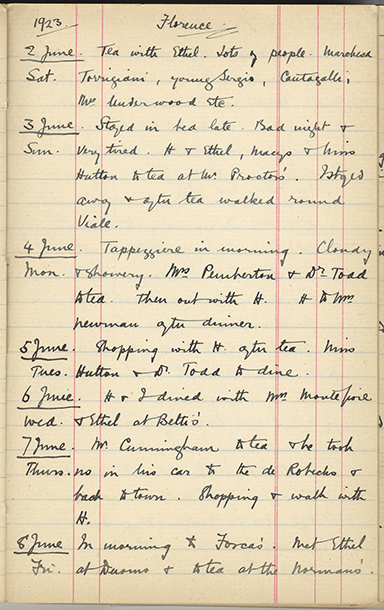 1923. Florence.
2 June. Tea with Ethel. Lots of people. Marchesa
Sat. Torrigiani, young Sergio, Cantagalli,
Mrs Underwood etc.
3 June. Stayed in bed late. Bad night &
Sun. very tired. H & Ethel, Macys & Miss
Hutton to tea at Mr Proctors'. I stayed
away & after tea walked round
Viale.
4 June. Tappezziere in morning. Cloudy
Mon. & showery. Mrs Pemberton & Dr Todd
to tea. Then out with H. H to Mrs
Newman after dinner.
5 June. Shopping with H. after tea. Miss
Tues. Hutton & Dr Todd to dine.
6 June. H & I dined with Mrs Montefiore
Wed. & Ethel at Betti's.
7 June. Mr Cunningham to tea & he took
Thurs. us in his car to the de Robecks &
back to town. Shopping & walk with
H.
8 June In morning to Forca's. Met Ethel
Fri. at Duomo & to tea at the Normans'.